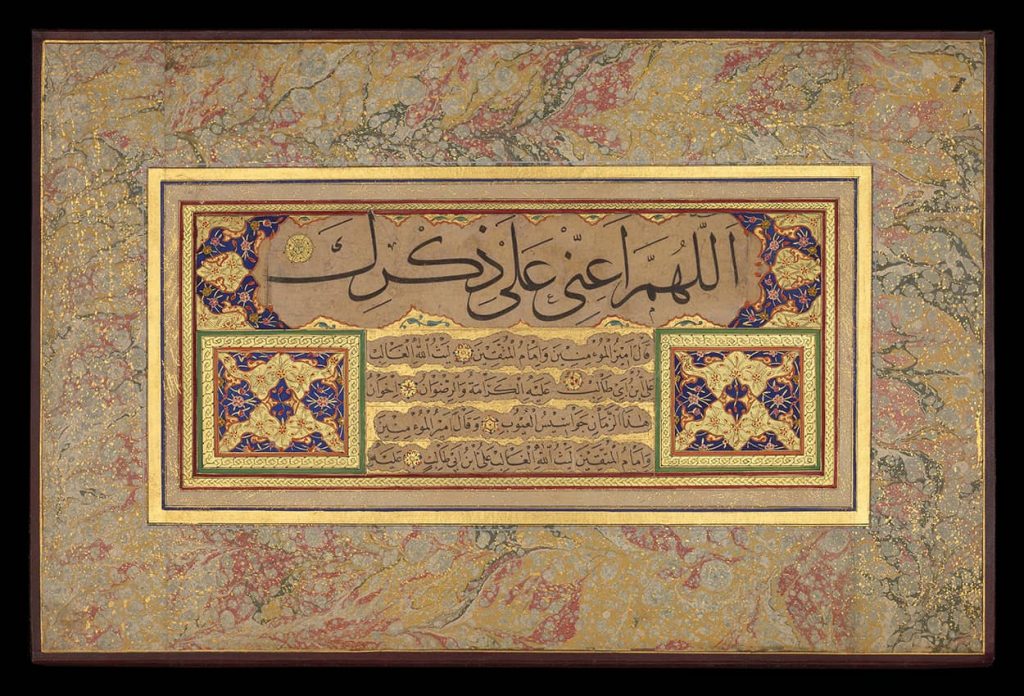 اَللّٰهُمَّ اَعِنِّى عَلَى ذِكْرِكَ
قال امير المؤمنين وامام المتقين ليث الله الغالب
على بن ابى طالب عليه الكرامة والرضوان اخوان
هذا الزمان جواسيس العيوب وقال امير المؤمنين
وامام المتقين ليث الله الغالب على ابن ابى طالب عليه